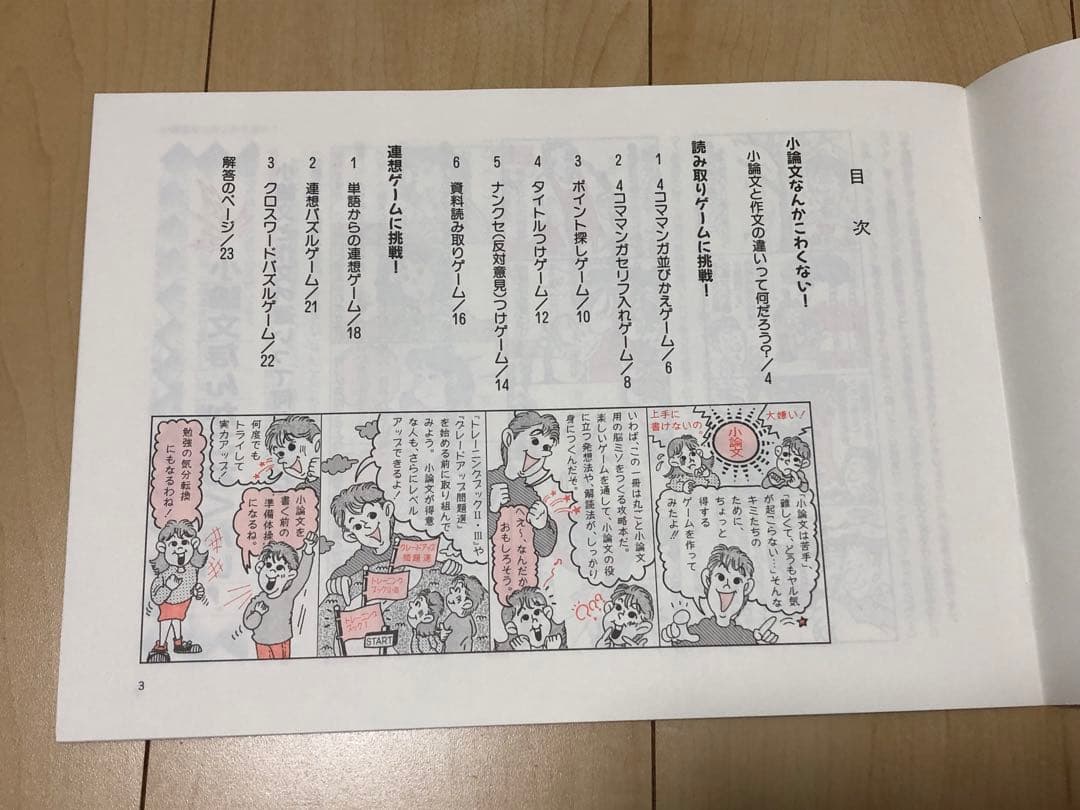 目次
小論文なんかこわくない！
小論文と作文の違いって何だろう？/4
読み取りゲームに挑戦！
1 4コママンガ並びかえゲーム/6
2 4コママンガセリフ入れゲーム/8
3 ポイント探しゲーム/10
4 タイトルつけゲーム/12
5 ナンクセ(反対意見)つけゲーム/14
6 資料読み取りゲーム/16
連想ゲームに挑戦！
1 単語からの連想ゲーム/18
2 連想パズルゲーム/21
3 クロスワードパズルゲーム/22
解答のページ/23
大嫌い！
小論文
上手に
書けないの
「小論文は苦手」、
「難しくて、どうもヤル気
が起こらない…」そんな
キミたちの
ために、
ちょっと
得する
ゲームを作って
みたよ!!
いわば、この一冊は丸ごと小論文
用の脳ミソをつくる攻略本だ。
楽しいゲームを通して、小論文の役
に立つ発想法や、解読法が、しっかり
身につくんだぞ。
へえ〜、なんだか
おもしろそう。
『トレーニングブックⅡ・Ⅲ』や
『グレードアップ問題選』
を始める前に取り組んで
みよう。小論文が得意
な人も、さらにレベル
アップできるよ！
グレードアップ
問題選
トレーニング
ブックⅡ・Ⅲ
トレーニング
ブックⅠ
START
何度でも
トライして
実力アップ！
小論文を
書く前の
準備体操
になるね。
勉強の気分転換
にもなるわね！
3